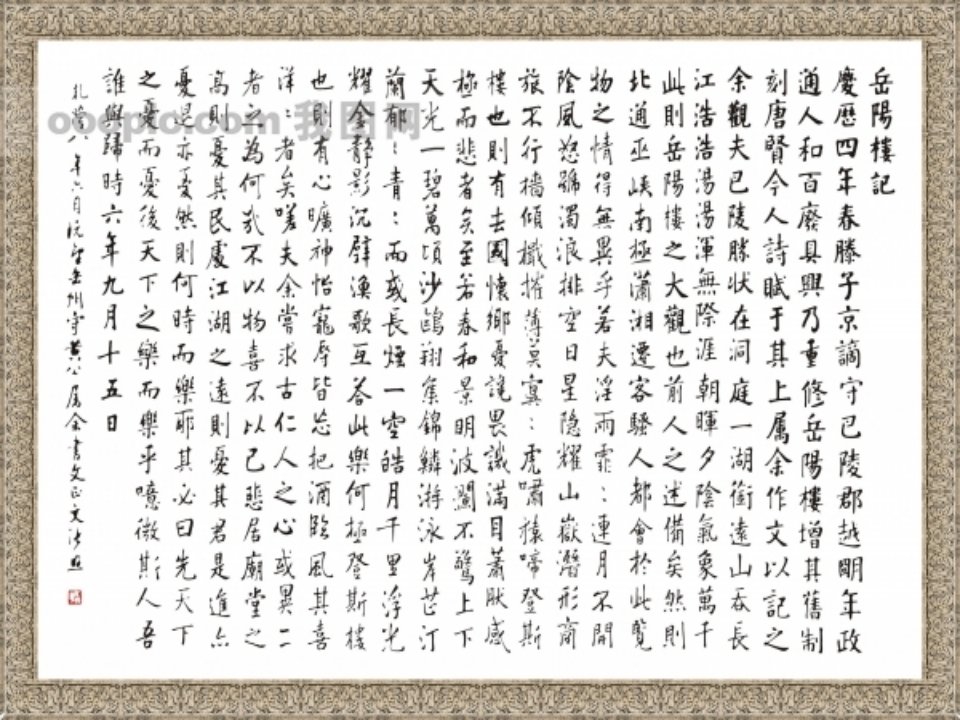 岳陽樓記
慶歷四年春滕子京謫守巴陵郡越明年政
通人和百廢具興乃重修岳陽樓增其舊制
刻唐賢今人詩賦于其上属余作文以記之
余觀夫巴陵勝状在洞庭一湖銜遠山吞長
江浩浩湯湯渾無際涯朝暉夕陰氣象萬千
此則岳陽樓之大觀也前人之述備矣然則
北通巫峽南極瀟湘遷客騷人都會於此覧
物之情得無異乎若夫淫雨霏:連月不開
陰風怒號濁浪排空日星隐耀山嶽潛形商
旅不行檣傾檝摧薄暮冥:虎嘯猿啼登斯
樓也則有去國懷鄉憂讒畏譏滿目蕭然感
極而悲者矣至若春和景明波瀾不驚上下
天光一碧萬頃沙鷗翔集錦鱗游泳岸芷汀
蘭郁:青:而或長煙一空皓月千里浮光
耀金静影沉璧漁歌互答此樂何極登斯樓
也則有心曠神怡寵辱皆忘把酒臨風其喜
洋:者矣嗟夫余嘗求古仁人之心或異二
者之為何哉不以物喜不以己悲居廟堂之
高則憂其民處江湖之遠則憂其君是進亦
憂退亦憂然則何時而樂耶其必曰先天下
之憂而憂後天下之樂而樂乎噫微斯人吾
誰與歸時六年九月十五日
年六月 岳州守黄 属余書文正文
ooopic.com 我图网